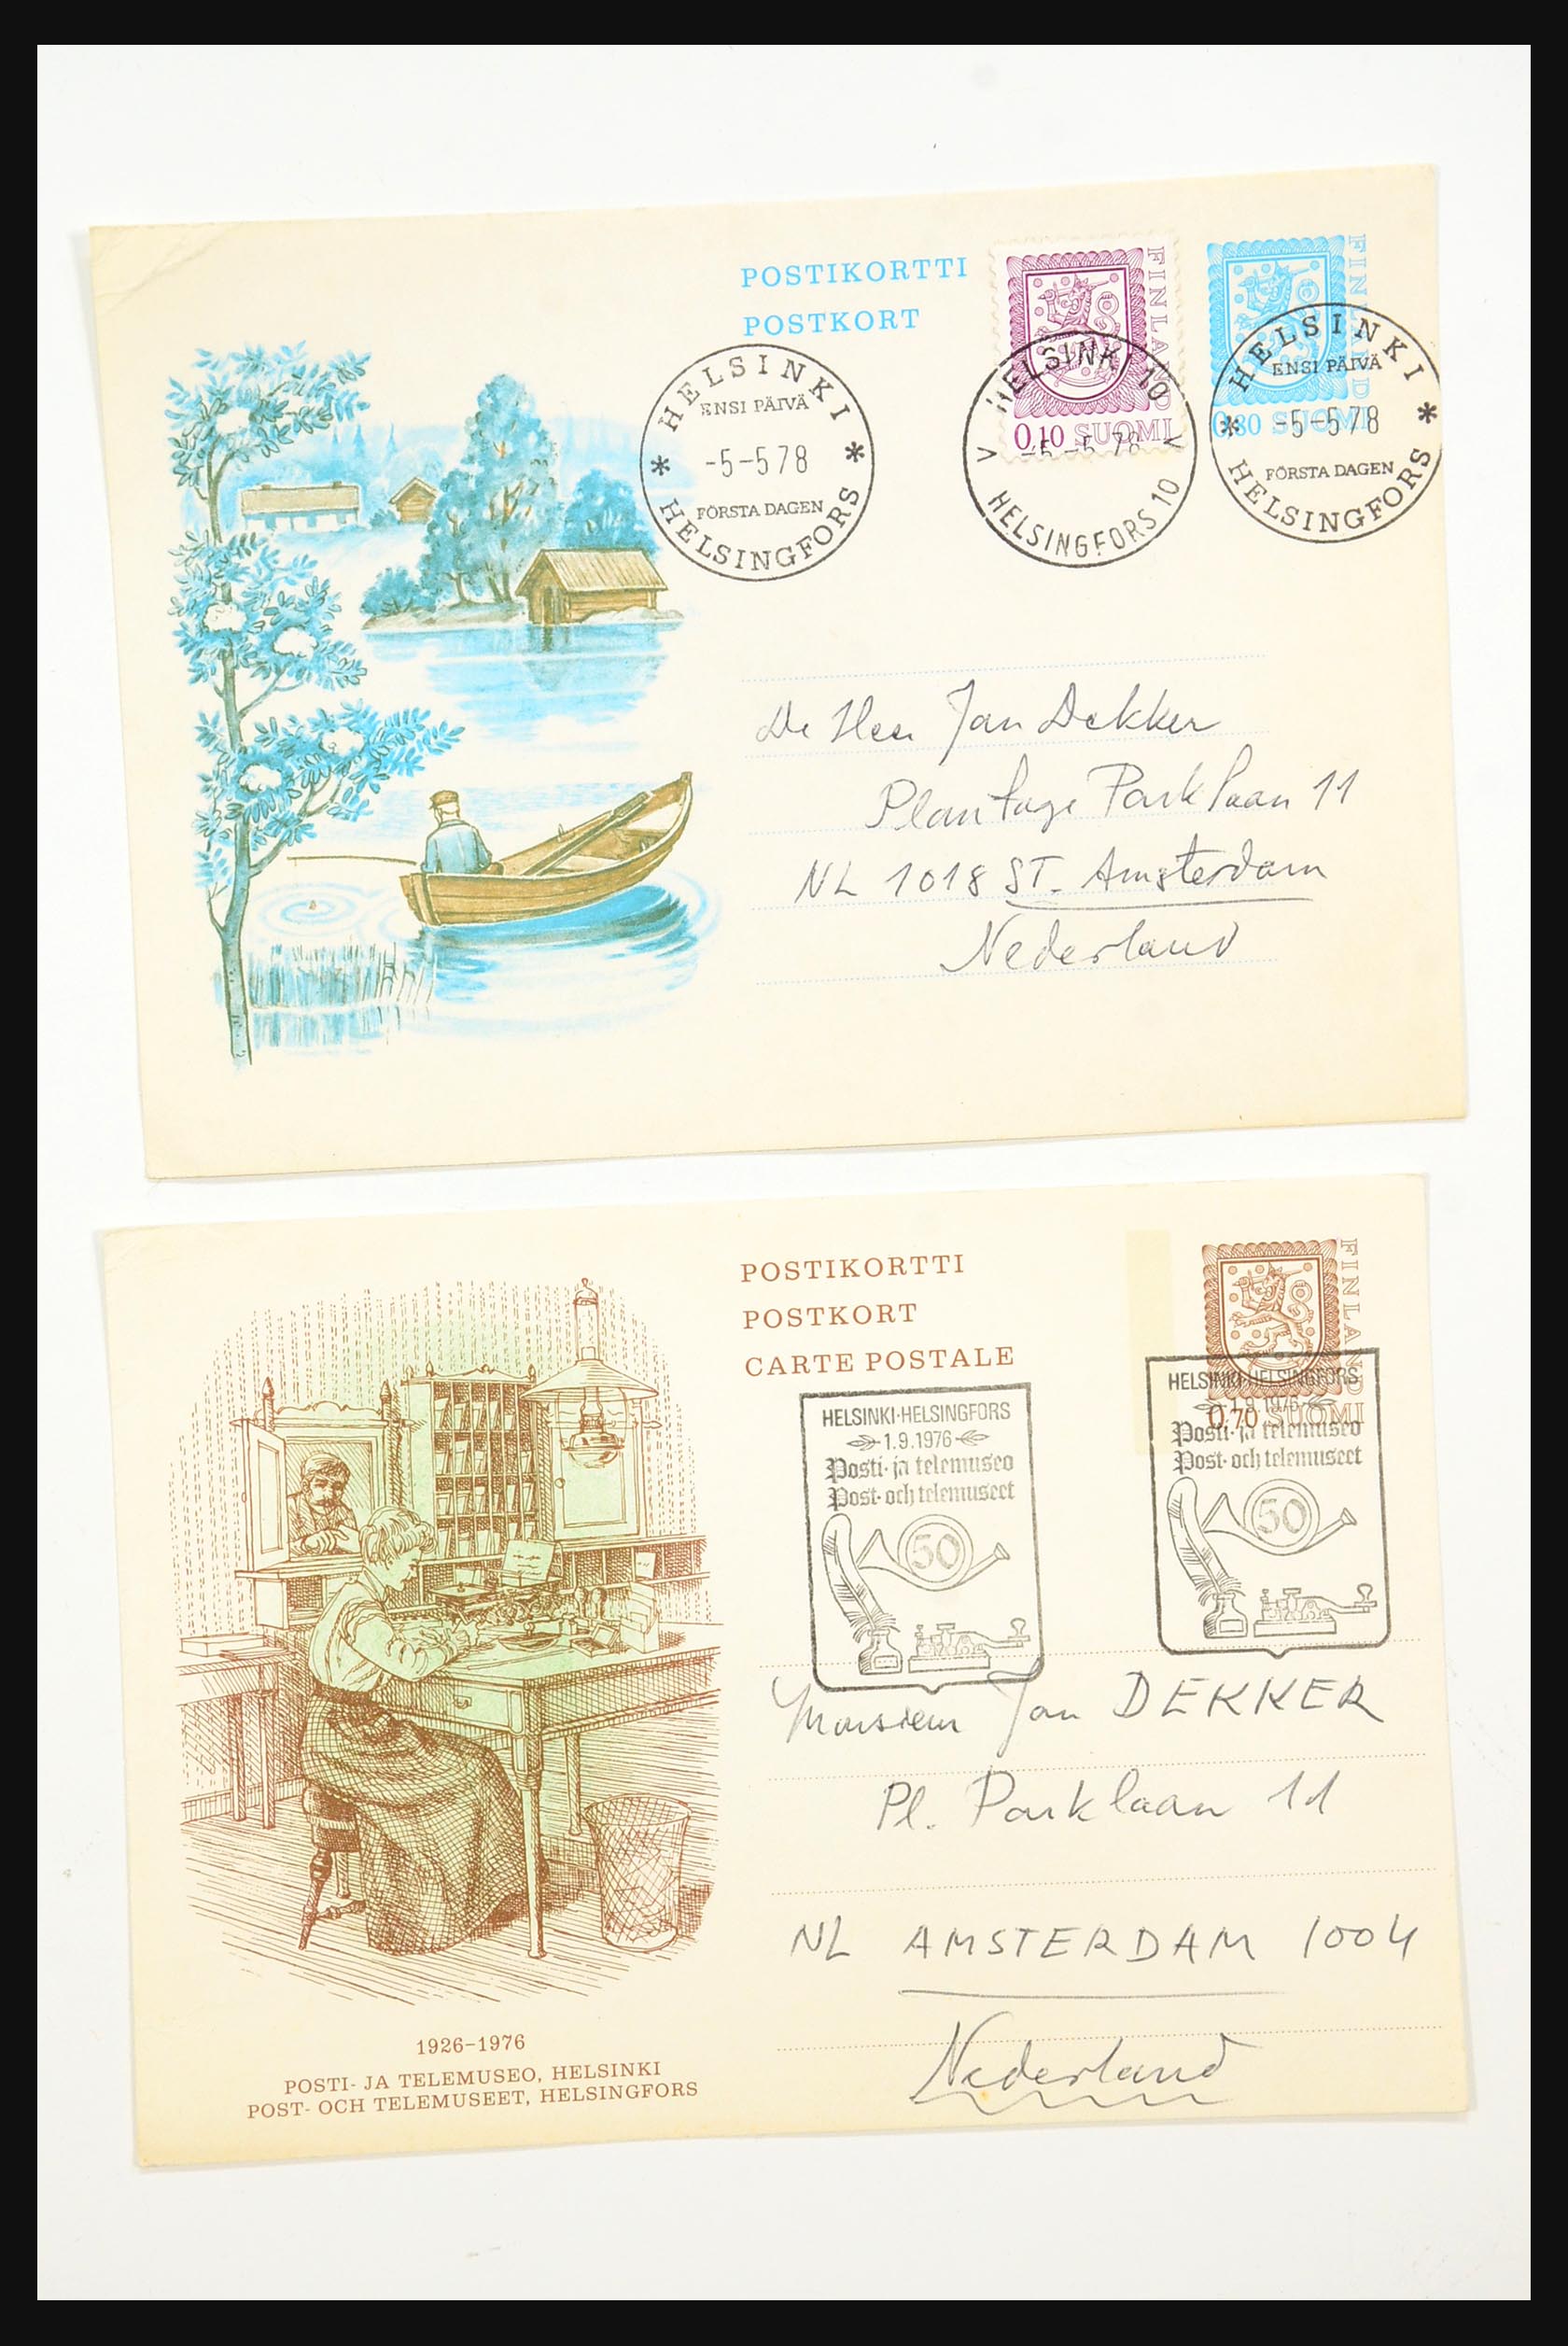 POSTIKORTTI
POSTKORT
FINLAND
0,10 SUOMI
FINLAND
0,80 SUOMI
HELSINKI
ENSI PÄIVÄ
* -5-5 78 *
FÖRSTA DAGEN
HELSINGFORS
HELSINKI 10
-5-5 78
HELSINGFORS 10
HELSINKI
ENSI PÄIVÄ
* -5-5 78 *
FÖRSTA DAGEN
HELSINGFORS
De Heer Jan Dekker
Plantage Parklaan 11
NL 1018 ST. Amsterdam
Nederland
POSTIKORTTI
POSTKORT
CARTE POSTALE
FINLAND
0,70 SUOMI
HELSINKI-HELSINGFORS
1.9.1976
Posti- ja telemuseo
Post- och telemuseet
50
HELSINKI-HELSINGFORS
1.9.1976
Posti- ja telemuseo
Post- och telemuseet
50
Monsieur Jan DEKKER
Pl. Parklaan 11
NL AMSTERDAM 1004
Nederland
1926-1976
POSTI- JA TELEMUSEO, HELSINKI
POST- OCH TELEMUSEET, HELSINGFORS